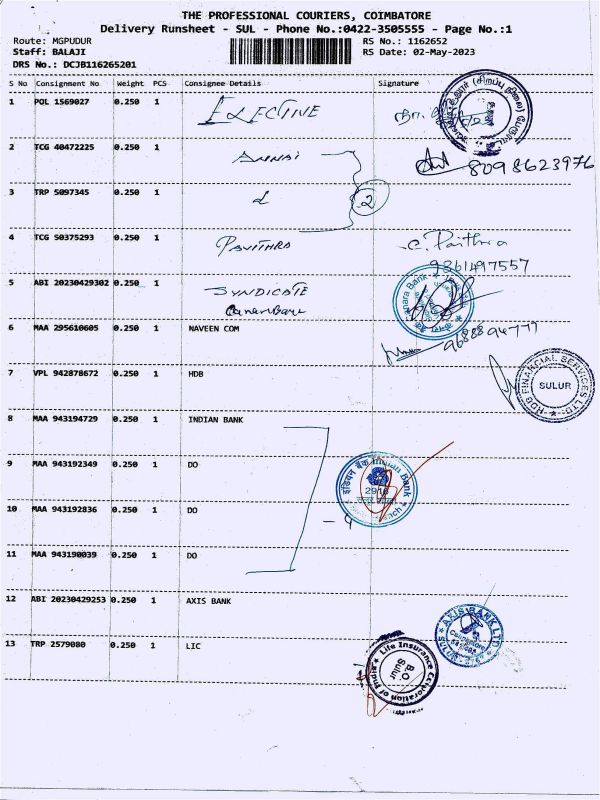 THE PROFESSIONAL COURIERS, COIMBATORE
Delivery Runsheet - SUL - Phone No.:0422-3505555 - Page No.:1
Route: MGPUDUR RS No.: 1162652
Staff: BALAJI RS Date: 02-May-2023
DRS No.: DCJB116265201
S No Consignment No Weight PCS Consignee Details Signature
1 PQL 1569027 0.250 1 ELECTIVE
2 TCG 40472225 0.250 1 ANNAI
8098623976
3 TRP 5097345 0.250 1 2
4 TCG 50375293 0.250 1 PAVITHRA C. Paithra
9361497557
5 ABI 20230429302 0.250 1 SYNDICATE
Canara Bank
6 MAA 295610605 0.250 1 NAVEEN COM
7 VPL 942878672 0.250 1 HDB
HDB FINANCIAL SERVICES LTD.
SULUR
8 MAA 943194729 0.250 1 INDIAN BANK
9 MAA 943192349 0.250 1 DO
इंडियन बैंक Indian Bank
10 MAA 943192836 0.250 1 DO
11 MAA 943190039 0.250 1 DO
12 ABI 20230429253 0.250 1 AXIS BANK
AXIS BANK LTD
13 TRP 2579080 0.250 1 LIC
Life Insurance Corporation of India
B.O.
Sulur